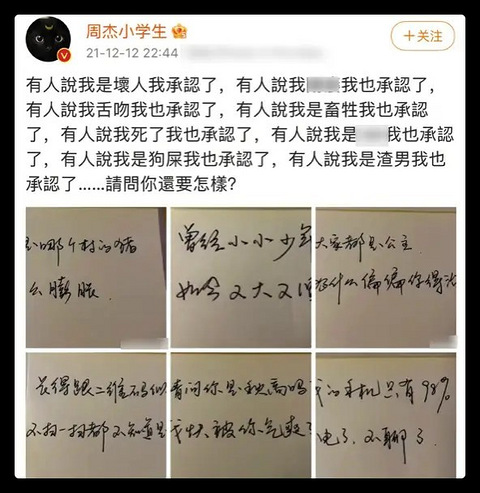 周杰小学生
21-12-12 22:44
+关注
有人說我是壞人我承認了，有人說我我也承認了，
有人說我舌吻我也承認了，有人說我是畜牲我也承認
了，有人說我死了我也承認了，有人說我是我也承認
了，有人說我是狗屎我也承認了，有人說我是渣男我也
承認了......請問你還要怎樣?
是哪个村的猪
么膨胀
曾经小小少年
如今又大又
大家都是公主
什么偏偏你得
长得跟二维码似
不扫一扫都不知道是
请问你是秋高吗
我快被你气爽
我的手机只有98%
电了. 不聊了.